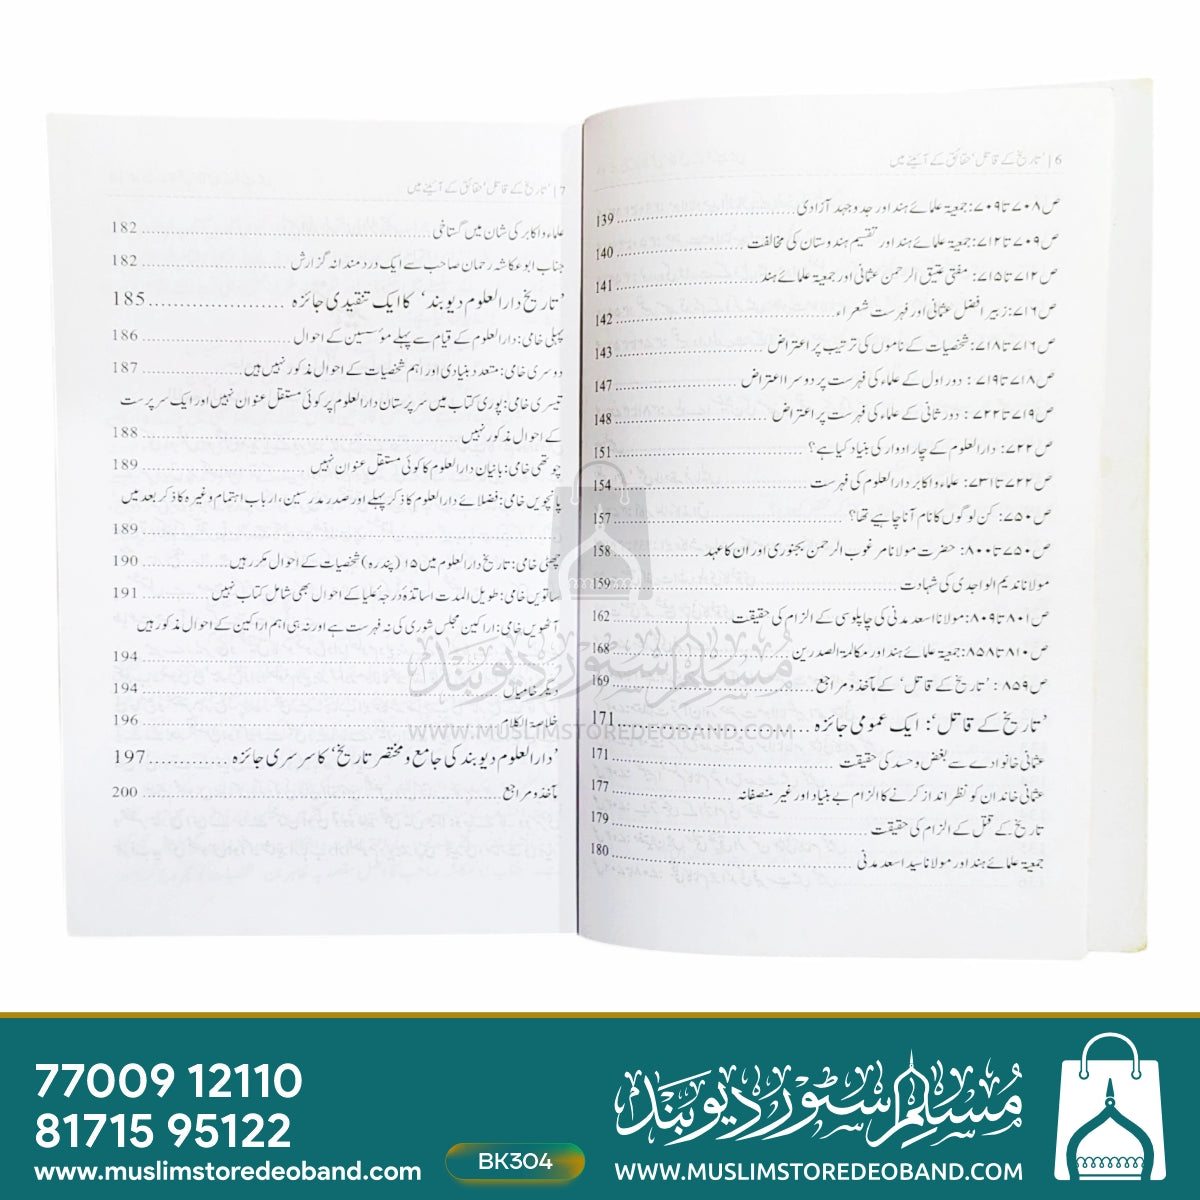 6 | 'تاریخ کے قاتل' حقائق کے آئینے میں
ص ۷۰۸ تا ۷۰۹: جمعیۃ علمائے ہند اور جد و جہد آزادی 139
ص ۷۰۹ تا ۷۱۲: جمعیۃ علمائے ہند اور تقسیم ہندوستان کی مخالفت 140
ص ۷۱۲ تا ۷۱۵: مفتی عتیق الرحمن عثمانی اور جمعیۃ علمائے ہند 141
ص ۷۱۶: زبیر افضل عثمانی اور فہرست شعراء 142
ص ۷۱۶ تا ۷۱۸: شخصیات کے ناموں کی ترتیب پر اعتراض 143
ص ۷۱۸ تا ۷۱۹: دور اول کے علماء کی فہرست پر دوسرا اعتراض 147
ص ۷۱۹ تا ۷۲۲: دور ثانی کے علماء کی فہرست پر اعتراض 148
ص ۷۲۲: دارالعلوم کے چار ادوار کی بنیاد کیا ہے؟ 151
ص ۷۲۲ تا ۷۳۱: علماء و اکابر دارالعلوم کی فہرست 154
ص ۷۵۰: کن لوگوں کا نام آنا چاہیے تھا؟ 157
ص ۷۵۰ تا ۸۰۰: حضرت مولانا مرغوب الرحمن بجنوری اور ان کا عہد 158
مولانا ندیم الواجدی کی شہادت 159
ص ۸۰۱ تا ۸۰۹: مولانا اسعد مدنی کی چاپلوسی کے الزام کی حقیقت 162
ص ۸۱۰ تا ۸۵۸: جمعیۃ علمائے ہند اور مکالمۃ الصدرین 168
ص ۸۵۹: 'تاریخ کے قاتل' کے مآخذ و مراجع 169
'تاریخ کے قاتل': ایک عمومی جائزہ 171
عثمانی خانوادے سے بغض و حسد کی حقیقت 171
عثمانی خاندان کو نظر انداز کرنے کا الزام بے بنیاد اور غیر منصفانہ 177
تاریخ کے قتل کے الزام کی حقیقت 179
جمعیۃ علمائے ہند اور مولانا سید اسعد مدنی 180
7 | 'تاریخ کے قاتل' حقائق کے آئینے میں
علماء و اکابر کی شان میں گستاخی 182
جناب ابو عکاشہ رحمان صاحب سے ایک دردمندانہ گزارش 182
'تاریخ دارالعلوم دیوبند' کا ایک تنقیدی جائزہ 185
پہلی خامی: دارالعلوم کے قیام سے پہلے مؤسسین کے احوال 186
دوسری خامی: متعدد بنیادی اور اہم شخصیات کے احوال مذکور نہیں ہیں 187
تیسری خامی: پوری کتاب میں سرپرستان دارالعلوم پر کوئی مستقل عنوان نہیں اور ایک سرپرست
کے احوال مذکور نہیں 188
چوتھی خامی: بانیان دارالعلوم کا کوئی مستقل عنوان نہیں 189
پانچویں خامی: فضلائے دارالعلوم کا ذکر پہلے اور صدر مدرسین، ارباب اہتمام وغیرہ کا ذکر بعد میں
189
چھٹی خامی: تاریخ دارالعلوم میں ۱۵ (پندرہ) شخصیات کے احوال مکرر ہیں 190
ساتویں خامی: طویل المدت اساتذۂ درجہ علیا کے احوال بھی شامل کتاب نہیں 191
آٹھویں خامی: اراکین مجلس شوریٰ کی نہ فہرست ہے اور نہ ہی اہم اراکین کے احوال مذکور ہیں
194
دیگر خامیاں 194
خلاصۃ الکلام 196
'دارالعلوم دیوبند کی جامع و مختصر تاریخ' کا سرسری جائزہ 197
مآخذ و مراجع 200
مسلم سٹور دیوبند
WWW.MUSLIMSTOREDEOBAND.COM
77009 12110
81715 95122
www.muslimstoredeoband.com
BK304
مسلم سٹور دیوبند
WWW.MUSLIMSTOREDEOBAND.COM